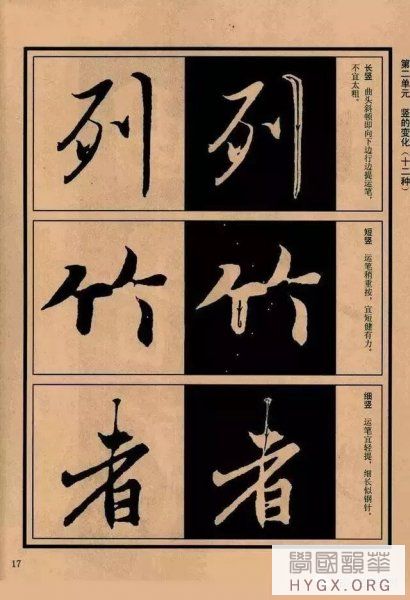 第二单元 竖的变化（十二种）
长竖 曲头斜顿即向下边行边提运笔，
不宜太粗。
列
列
短竖 运笔稍重按，宜短健有力。
竹
竹
细竖 运笔宜轻提，细长似钢针。
者
者
17
學國韻華
HYGX.ORG